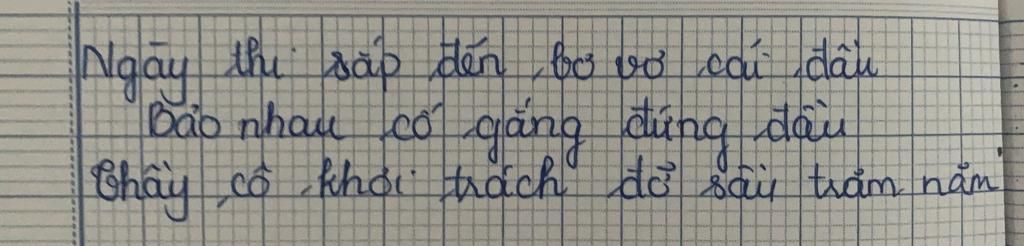 Ngày thi sắp đến, bơ vơ cái đầu
Bảo nhau cố gắng đứng đầu
Thầy cô khỏi trách đỡ sầu trăm năm